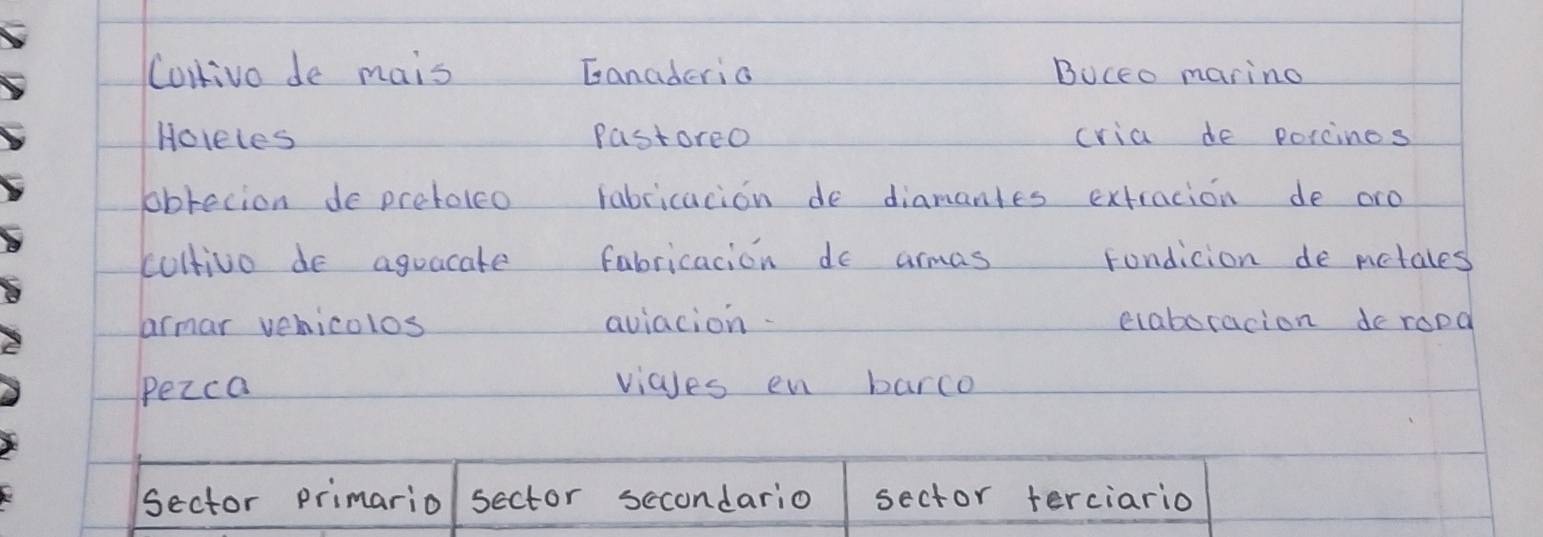 Coltivo de mais Ganaderia Buceo marino
Holeles Pastoreo cria de porcinos
obtecion de pretoleo fabricación de diamantes extración de oro
coltivo de aguacate fabricación de armas fondicion de metales
armar vehicolos aviacion elaboracion de ropa
pezca viajes en barco
sector primario sector secondario sector terciario